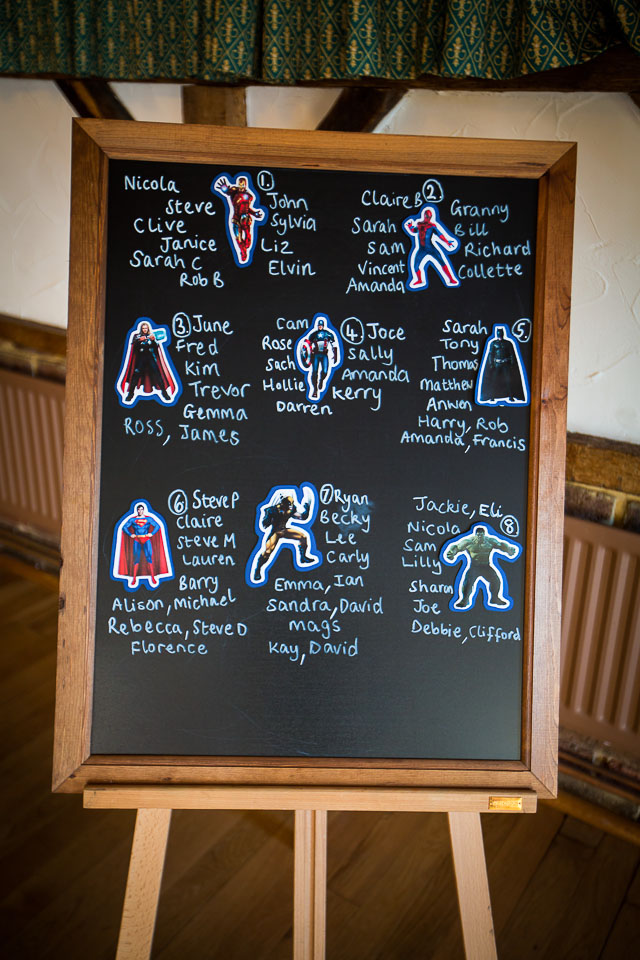 1.
Nicola
Steve
Clive
Janice
Sarah C
Rob B
John
Sylvia
Liz
Elvin
2
Claire B
Sarah
Sam
Vincent
Amanda
Granny
Bill
Richard
Collette
3. June
Fred
Kim
Trevor
Gemma
ROSS, James
4.
Cam
Rose
Sach
Hollie
Darren
Joce
Sally
Amanda
Kerry
5.
Sarah
Tony
Thomas
Matthew
Anwen
Harry, Rob
Amanda, Francis
6 Steve P
Claire
Steve M
Lauren
Barry
Alison, Michael
Rebecca, Steve D
Florence
7 Ryan
Becky
Lee
Carly
Emma, Ian
Sandra, David
Mags
Kay, David
8
Jackie, Eli
Nicola
Sam
Lilly
Sharon
Joe
Debbie, Clifford